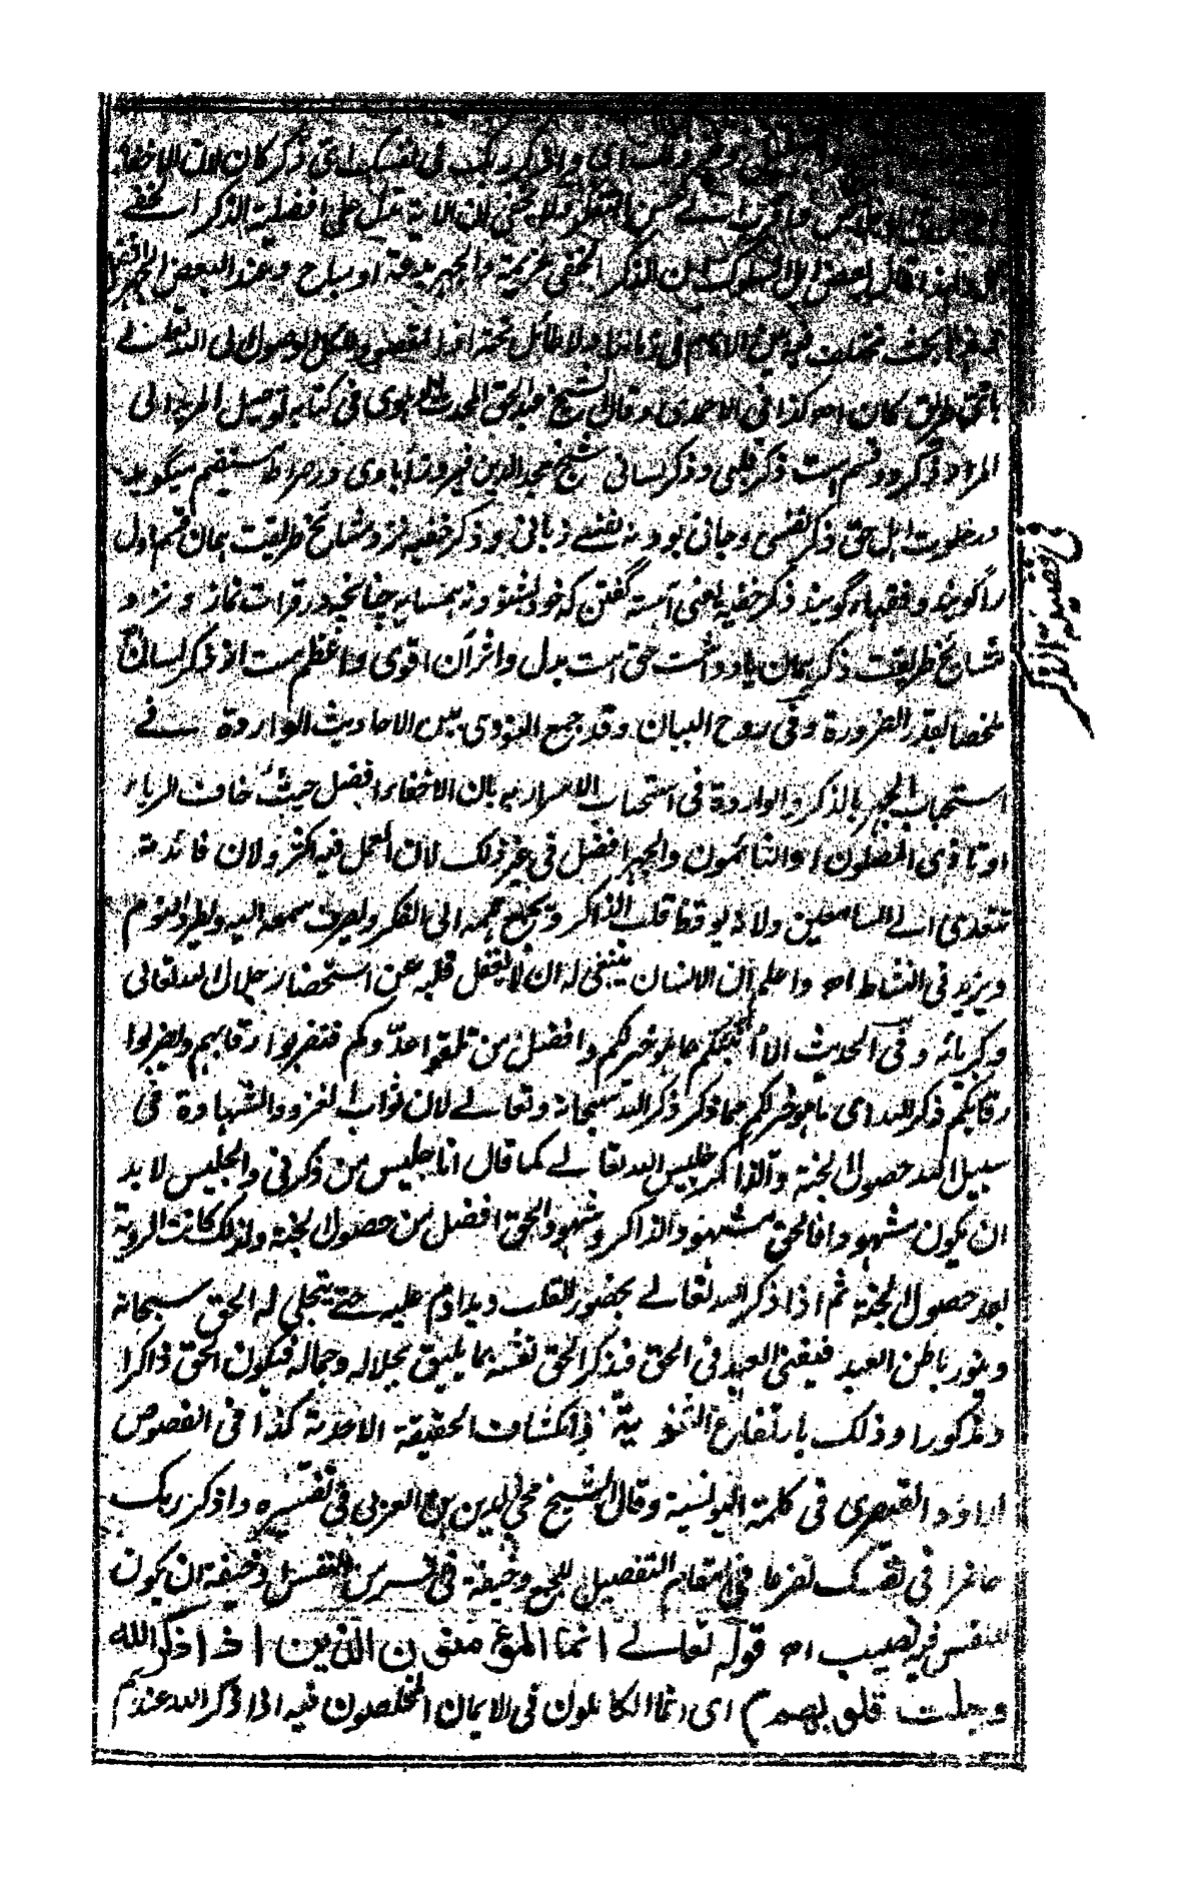 واذكر ربك فى نفسك اى ذكر كان لان الاخفاء
لان الآية تدل على افضلية الذكر الخفے
قال بعض اهل السلوك ان الذكر الخفى عزيمة والجهر بدعة او مباح وعند البعض الجهر افضل
البحث مختلف فيه بين الانام فى زماننا ولا طائل تحته اذ المقصود هو الوصول الى الله تعالے
باى طريق كان اھ كذا فى الاحمدى وقال الشيخ عبد الحق المحدث الدهلوى فى كتابه توصيل المريد الى
المراد ذكر دو قسم ست ذكر قلبى وذكر لسانى شيخ مجد الدين فيروزآبادى در صراط مستقيم ميگويد
در خلوت اهل حق ذكر نفسى وجانى بود نه نفسے زبانى وذكر خفيه نزد مشائخ طريقت همان قسم اول
را گويند وفقهاء گويند ذكر خفيه يعنى آهسته گفتن كه خود بشنود نه همسايه چنانچه در قرات نماز و نزد
مشائخ طريقت ذكر همان ياد داشت حق ست بدل واثر آن اقوى واعظم ست از ذكر لسانى
ملخصا بقدر الضرورة وفى روح البيان وقد جمع النووى بين الاحاديث الواردة فے
استحباب الجهر بالذكر والواردة فى استحباب الاسرار به بان الاخفاء افضل حيث خاف الرياء
او تاذى المصلون او النائمون والجهر افضل فى غير ذلك لان العمل فيه اكثر ولان فائدته
تتعدى الے السامعين ولانه يوقظ قلب الذاكر ويجمع همه الى الفكر ويصرف سمعه اليه ويطرد النوم
ويزيد فى النشاط اھ واعلم ان الانسان ينبغى له ان لا يغفل قلبه عن استحضار جلال الله تعالى
وكبريائه وفى الحديث الا انبئكم بما هو خير لكم وافضل من تلقوا عدوكم فتضربوا رقابهم ويضربوا
رقابكم ذكر الله اى ما هو خير لكم مما ذكر ذكر الله سبحانه وتعالے لان ثواب الغزو والشهادة فى
سبيل الله حصول الجنة والذاكر جليس الله تعالے كما قال انا جليس من ذكرنى والجليس لا بد
ان يكون مشهودا فالحق مشهود الذاكر وشهود الحق افضل من حصول الجنة ولذلك كانت الروية
بعد حصول الجنة ثم اذا ذكر الله تعالے بحضور القلب ويداوم عليه حتے يتجلى له الحق سبحانه
وينور باطن العبد فيفنى العبد فى الحق فيذكر الحق نفسه بما يليق بجلاله وجماله فيكون الحق ذاكرا
ومذكورا وذلك بارتفاع الثنوية وانكشاف الحقيقة الاحدية كذا فى الفصوص
لداؤد القيصرى فى كلمة اليونسية وقال الشيخ محى الدين بن العربى فى تفسيره واذكر ربك
حاضرا فى نفسك تضرعا فى مقام التفصيل للجمع وخيفة فى السر من النفس وخيفة ان يكون
للنفس فيه نصيب اھ قوله تعالے انما المؤمنون الذين اذا ذكر الله
وجلت قلوبهم اى انما الكاملون فى الايمان المخلصون فيه اذا ذكر الله عندهم
فى فضيلة الذكر